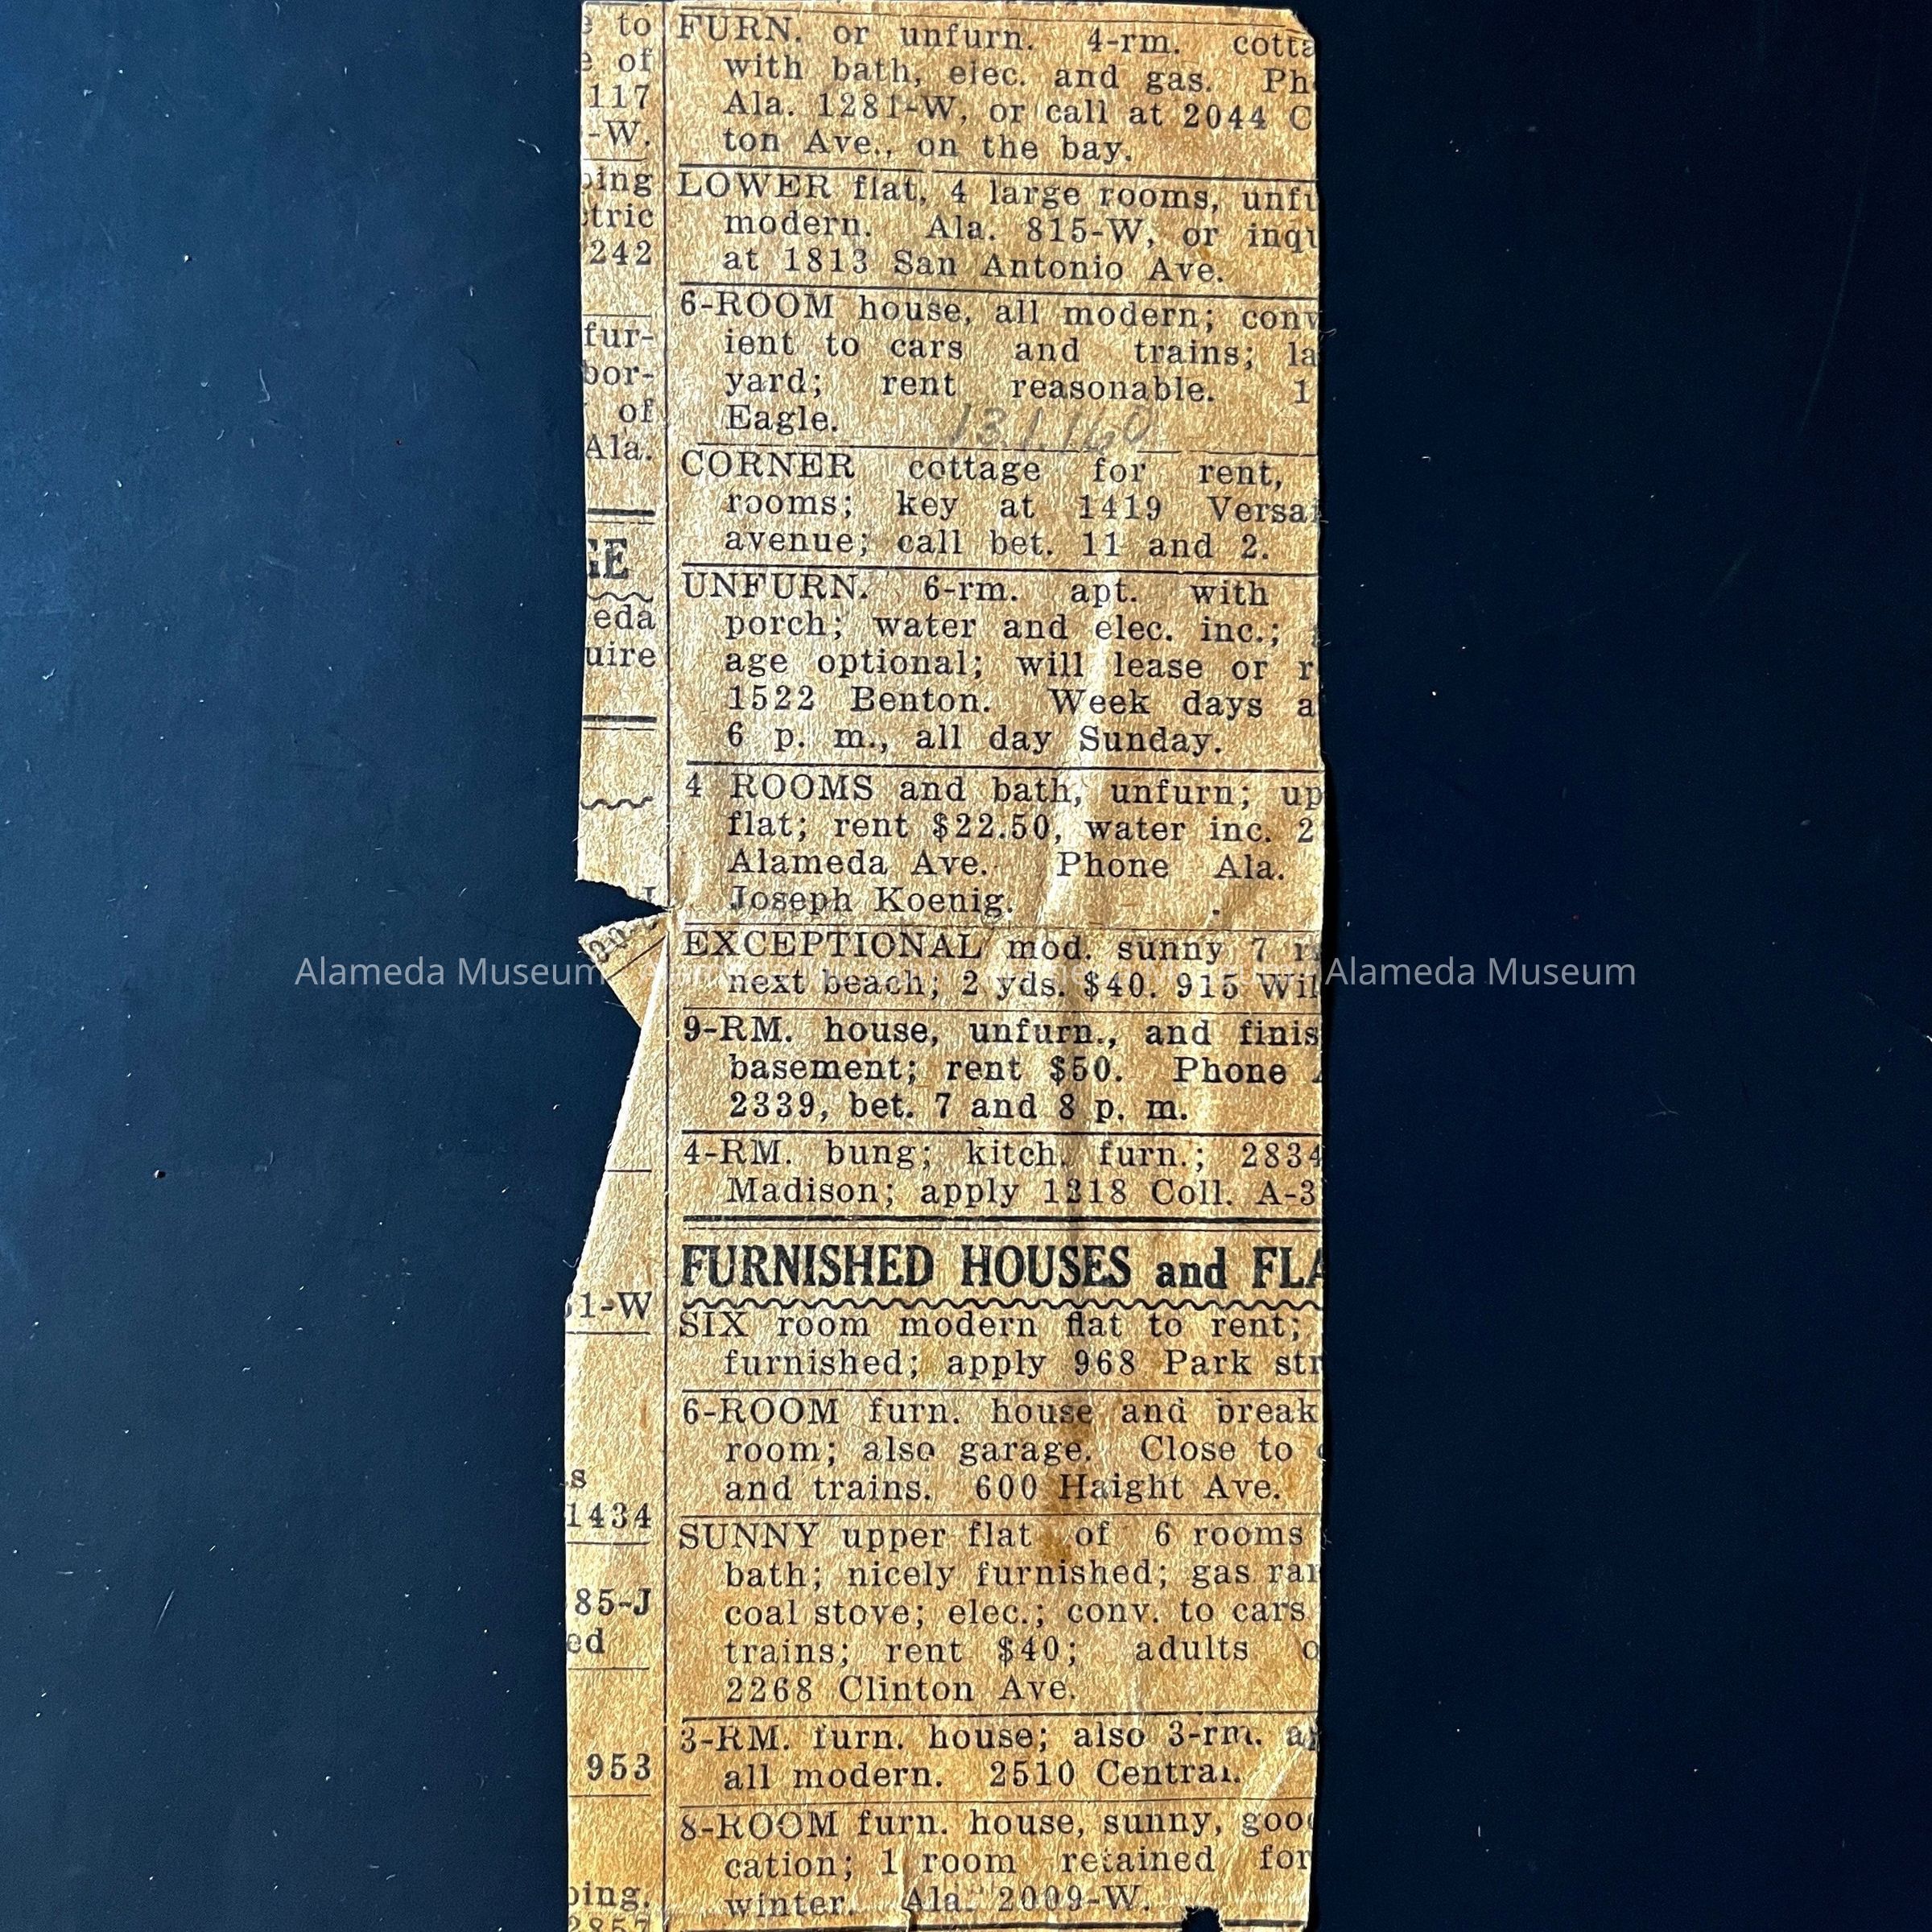 to
of
117
-W.
ing
tric
242
fur-
bor-
of
Ala.
GE
eda
uire
1-W
s
1434
85-J
ed
953
ing.
2857
FURN. or unfurn. 4-rm. cotta
with bath, elec. and gas. Ph
Ala. 1281-W, or call at 2044 C
ton Ave., on the bay.
LOWER flat, 4 large rooms, unfu
modern. Ala. 815-W, or inqu
at 1813 San Antonio Ave.
6-ROOM house, all modern; conv
ient to cars and trains; la
yard; rent reasonable. 1
Eagle.
CORNER cottage for rent,
rooms; key at 1419 Versai
avenue; call bet. 11 and 2.
UNFURN. 6-rm. apt. with
porch; water and elec. inc.;
age optional; will lease or r
1522 Benton. Week days a
6 p. m., all day Sunday.
4 ROOMS and bath, unfurn; up
flat; rent $22.50, water inc. 2
Alameda Ave. Phone Ala.
Joseph Koenig.
EXCEPTIONAL mod. sunny 7 r
next beach; 2 yds. $40. 915 Wil
9-RM. house, unfurn., and finis
basement; rent $50. Phone
2339, bet. 7 and 8 p. m.
4-RM. bung; kitch. furn.; 2834
Madison; apply 1218 Coll. A-3
FURNISHED HOUSES and FLA
SIX room modern flat to rent;
furnished; apply 968 Park str
6-ROOM furn. house and break
room; also garage. Close to
and trains. 600 Haight Ave.
SUNNY upper flat of 6 rooms
bath; nicely furnished; gas ran
coal stove; elec.; conv. to cars
trains; rent $40; adults o
2268 Clinton Ave.
3-RM. furn. house; also 3-rm. ap
all modern. 2510 Central.
8-ROOM furn. house, sunny, goo
cation; 1 room retained for
winter. Ala. 2009-W.
Alameda Museum
Alameda Museum